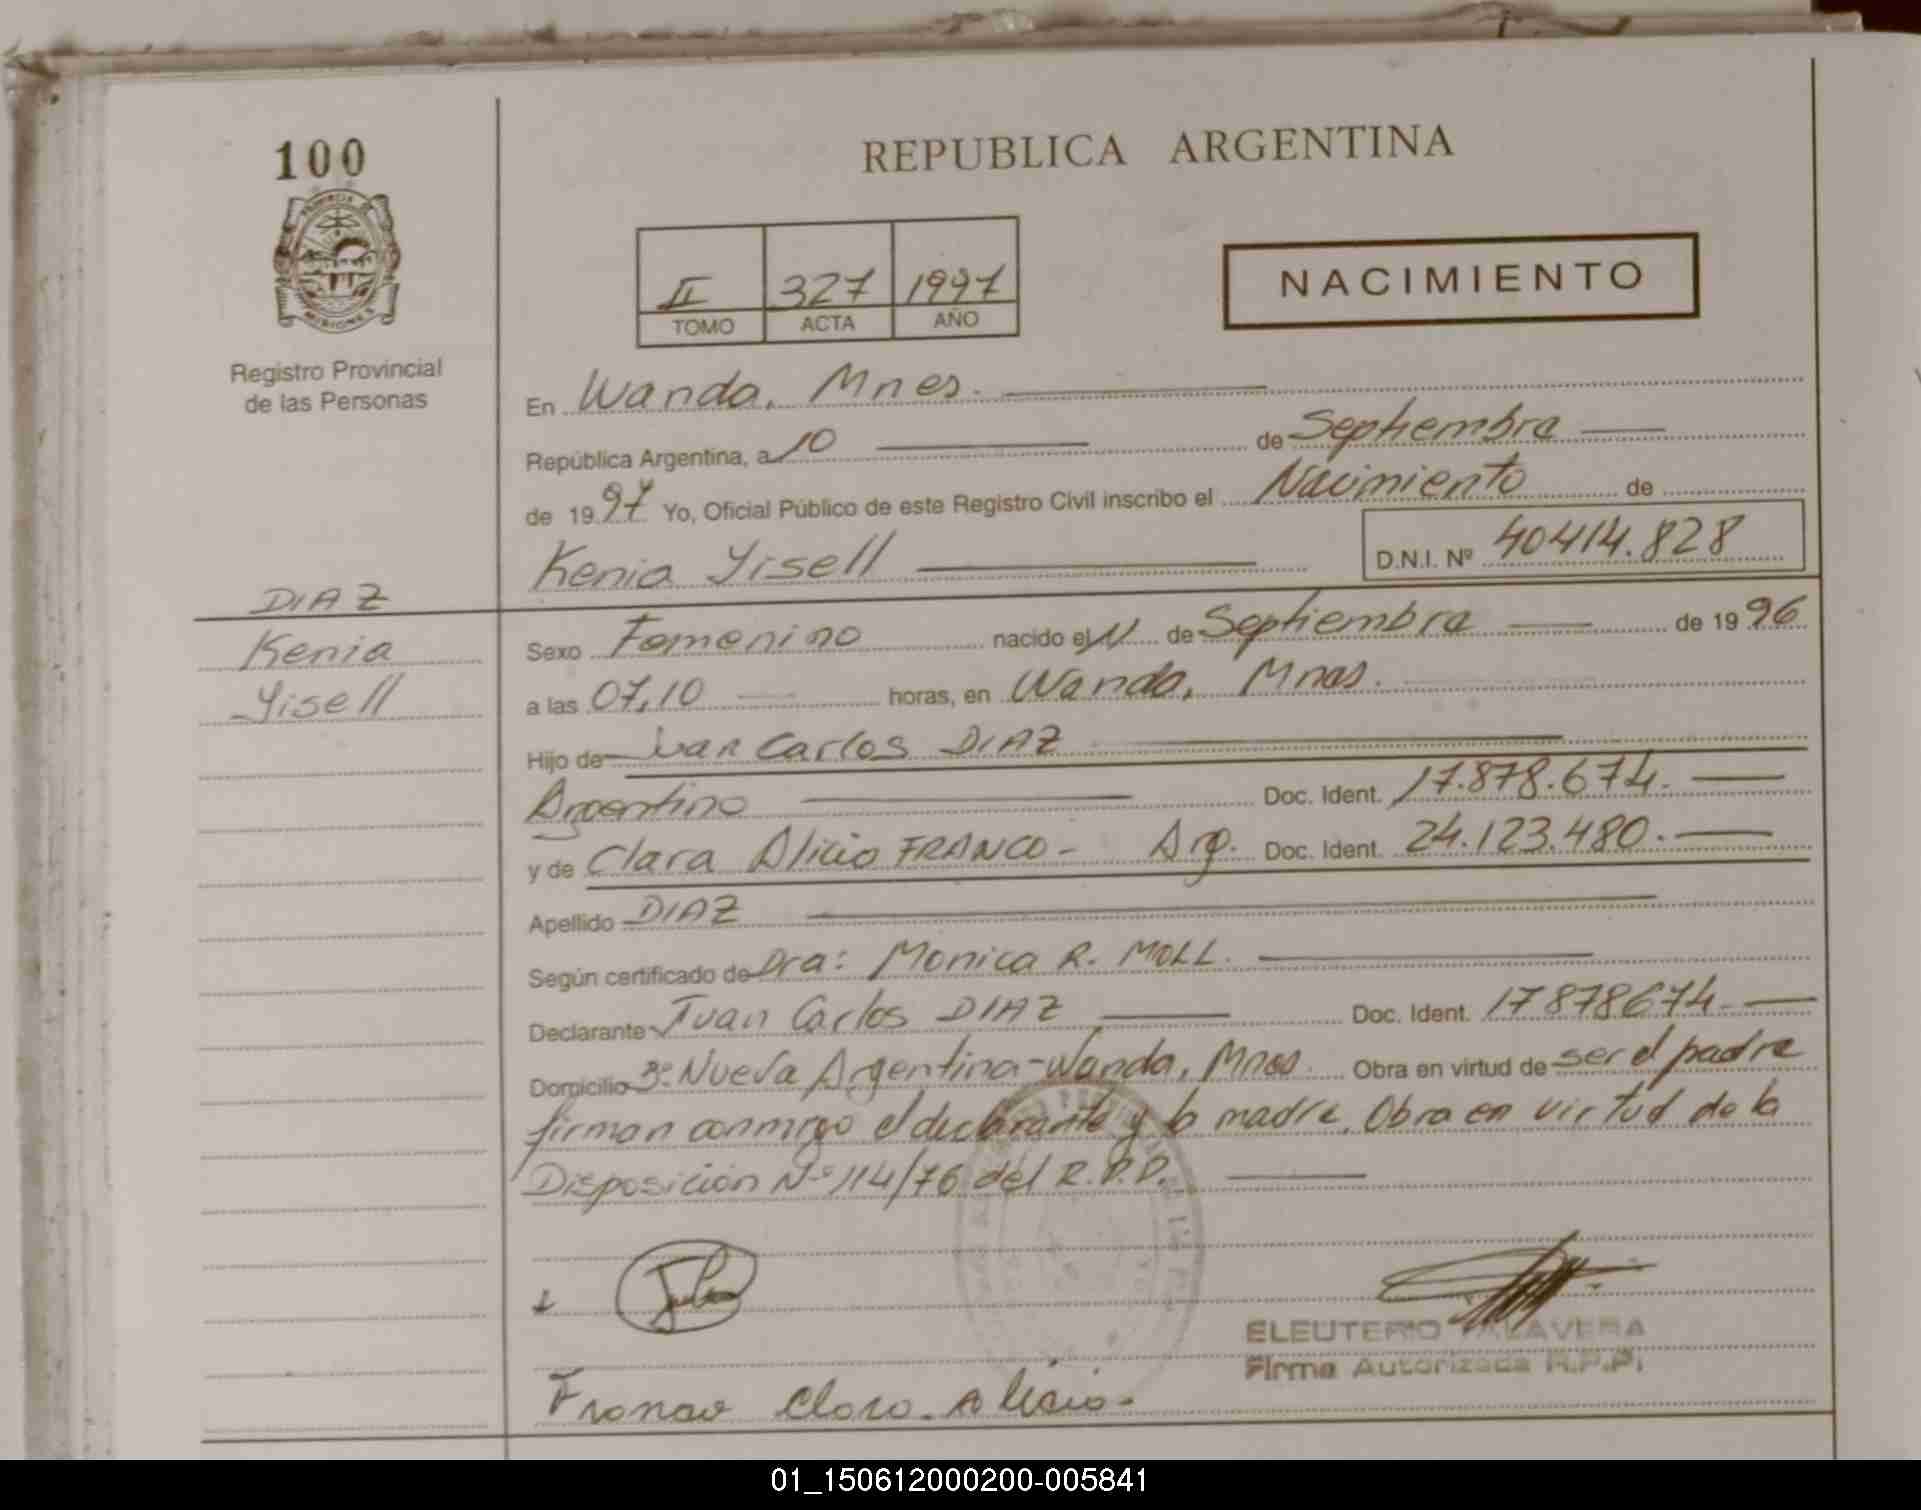 100
REPUBLICA ARGENTINA
PROVINCIA DE
MISIONES
Registro Provincial
de las Personas
II 327 1997
TOMO ACTA AÑO
NACIMIENTO
En Wanda, Mnes.
República Argentina, a 10 de Septiembre
de 1997 Yo, Oficial Público de este Registro Civil inscribo el Nacimiento de
Kenia Yisell D.N.I. Nº 40414.828
DIAZ
Kenia
Yisell
Sexo Femenino nacido el 11 de Septiembre de 1996
a las 07,10 horas, en Wanda, Mnes.
Hijo de Juan Carlos DIAZ
Argentino Doc. Ident. 17.878.674.
y de Clara Alicia FRANCO- Arg. Doc. Ident. 24.123.480.
Apellido DIAZ
Según certificado de Dra: Monica R. MOLL.
Declarante Juan Carlos DIAZ Doc. Ident. 17878674.
Domicilio Bº Nueva Argentina-Wanda, Mnes. Obra en virtud de ser el padre
firman conmigo el declarante y la madre. Obra en virtud de la
Disposición Nº 114/76 del R.P.P.
ELEUTERIO TALAVERA
Firma Autorizada R.P.P.
Franco Clara Alicia.
01_150612000200-005841